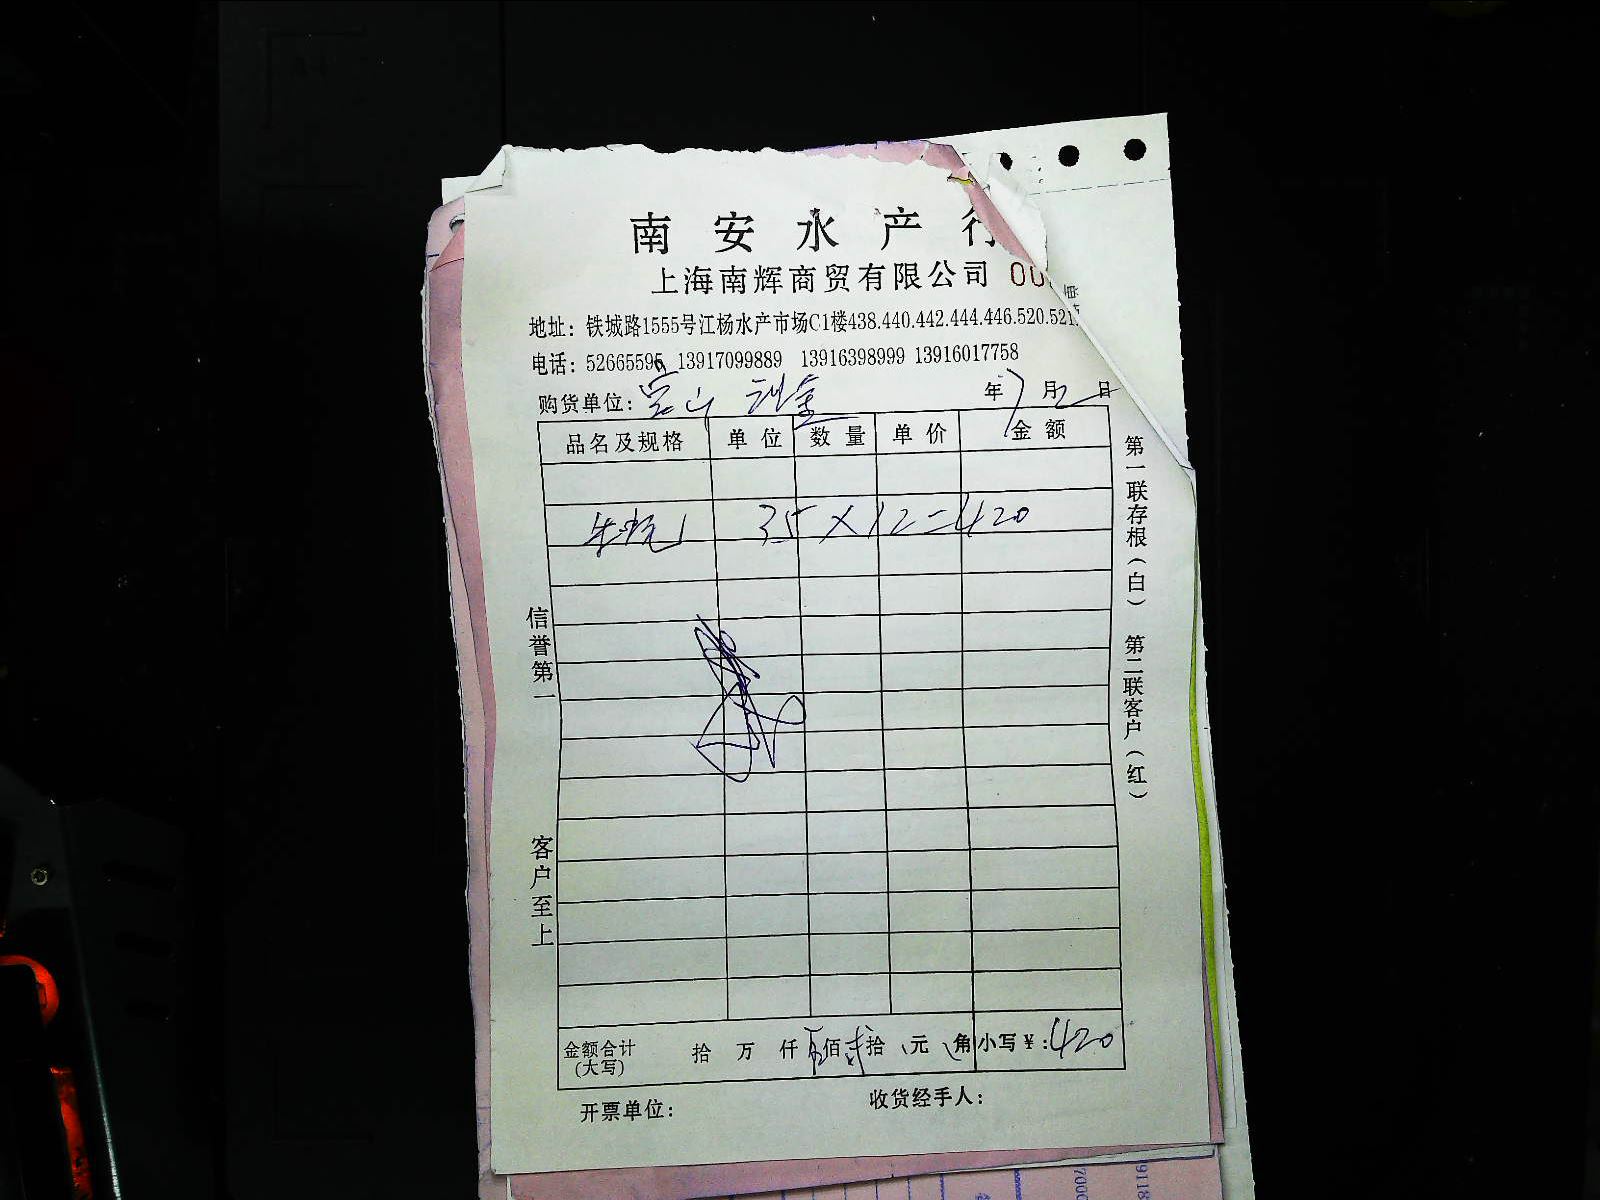 南安水产行
上海南辉商贸有限公司 00
地址：铁城路1555号江杨水产市场C1楼438.440.442.444.446.520.521.
电话：52665595 13917099889 13916398999 13916017758
购货单位：宝山 年7月2日
品名及规格 单位 数量 单价 金额
35×12=420
信誉第一
客户至上
第一联存根（白） 第二联客户（红）
金额合计（大写） 拾 万 仟 佰 拾 元 角 小写¥：420
开票单位： 收货经手人：